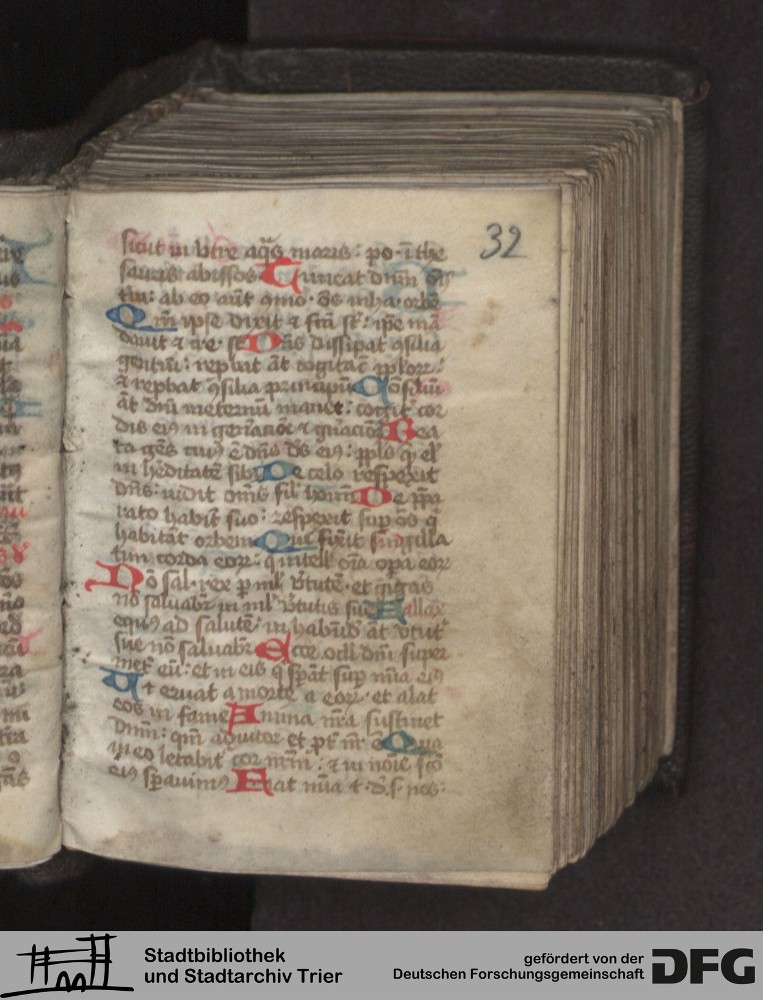 32
sicut in utre aq̄s maris: po· ī the
sauris abissos Timeat dn̄m oīs
t̄ra: ab eo aūt ꝯmo· ōs inha· orbē
Qm̄ ipse dixit ⁊ fc̄a st̄: ip̄e mā
dauit ⁊ cre· st̄ Dn̄s dissipat ꝯsilia
gentiū: reprbat āt cogitac̄ pp̄lorꝝ:
⁊ reprbat ꝯsilia principū Cōsiliū
āt dn̄i ineternū manet: cogit̄ cor
dis eiꝰ in gen̄acioē ⁊ gn̄acioē Bea
ta gēs cuiꝰ ē dn̄s dꝰs eiꝰ: pp̄ls q̄ el̄
in hēditatē sibi De celo respexit
dn̄s: uidit om̄s fil̄ hoīm De p̄pa
rato habit̄ suo: respexit sup̄ ōs q̄
habitāt orbem Qui fixit singilla
tim corda eorꝝ: q̄ intell̄ oīa opa eorꝝ
Nō sal· rex p̄ ml̄ v̄tutē· et gigas
nō saluabr̄ in ml̄ v̄tutis sue Fallax
equꝰ ad salutē: in habūd̄ āt v̄tut̄
sue nō saluabr̄ Ecce ocli dn̄i super
met̄ eū: et in eis q̄ sp̄āt sup̄ mīa eiꝰ
Ut eruat a morte a eorꝝ· et alat
eos in fame Anima nr̄a sustinet
dn̄m: qm̄ adiutor et p̄t̄ nr̄ ē Quia
in eo letabit̄ cor nr̄m: ⁊ in noīe sc̄o
eiꝰ sp̄auimꝰ Fiat mīa t· d· s· nos:
Stadtbibliothek
und Stadtarchiv Trier
gefördert von der
Deutschen Forschungsgemeinschaft
DFG